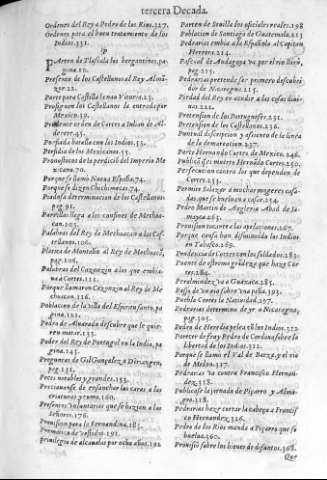 tercera Decada.
Ordenes del Rey a Pedro de los Rios. 327.
Ordenes para el buen tratamiento de los
Indios. 331.
P
Parten de Tlascala los bergantines, pa
gina. 10.
Presente de los Castellanos al Rey
22.
Parte para Castilla 23.
Prosiguen los Castellanos la entrada por
Mexico. 39.
orden de Cortes a Iulian de Al-
derete. 45.
Porfiada batalla con los Indios. 53.
Perfidia de los Mexicanos. 55.
Pronosticos de la perdicion del Imperio Me
xicano. 70.
Porque se llamò Nueva España. 74.
Porque se dizen Chichimecas. 74.
Porfiada determinacion de los Castellanos
pag. 91.
llega a los confines de Mechoa-
can. 103.
Palabras del Rey de Mechoacan a los Cas-
tellanos. 106.
Platica de Montaño al Rey de Mechoacan,
pag. 106.
Palabras del Cazonzin a los que embia-
va a Cortes. 111.
Porque llamaron Cazonzin al Rey de Me-
choacan. 116.
Poblacion de la villa del Espiritu santo, pa
gina. 121.
Pedro de Alvarado descubre que le quie-
ren matar. 133.
Poder del Rey de Portugal en la India, pa
gina. 145.
Preguntas de Gil Gonçalez a
pag. 151.
Peces notables y grandes. 153.
Procuravase de ensanchar las casas a las
criaturas y como. 160.
Presentes voluntarios que se hazian a los
Señores. 176.
Provision para la Fernandina. 181
vestidos. 191.
privilegio de alcavalas por ocho años. 192
Parten de Sevilla los oficiales reales. 198
Poblacion de Santiago de Guatemala. 213
Pedrarias embia a la Española al Capitan
Herrera. 214.
Pascual de Andagoya va por el rio
pag. 215.
Pedrarias pretende ser primero descubri
dor de Nicaragua. 215.
del Rey en acudir a las cosas divi-
nas. 222.
Pretension de los Portugueses. 231.
Pretension de los Castellanos. 236
Puntual discripcion y assiento de la linea
de la demarcacion. 237.
Parte Hernando Cortes de Mexico. 246
Publica que muere Hernando Cortes. 250
Perseveravan contra los que dependen de
Cortes. 253.
Permite Salazar a muchas mugeres casa-
das, que se buelvan a casar. 254.
Pedro Martir de Angleria Abad de Ia-
mayca. 265.
Provision tocante a las apelaciones. 267.
Porque causa han disminuido los Indios
en Tabasco. 269.
Prudencia de Cortes con los soldados. 283.
Puente de estrema grandeza que haze Cor
tes. 284.
va a Guaxaca. 285.
Passa de un rio sobre una peña. 293.
Puebla Cortes la Natividad. 297.
Pedrarias determina de yr a Nicaragua,
pag. 305.
Pedro de Heredia pelea con los Indios. 322.
Parecer de fray Pedro de Cordova sobre la
libertad de los Indios. 311.
Porque se llamò el Val de y el rio
de Melon. 317.
Pedrarias va contra Francisco Hernan-
dez. 318.
Publicase la jornada de Piçarro y Alma-
gro. 318.
Pedrarias haze cortar la cabeça a Francis
co Hernandez. 326.
Pedro de los Rios manda a Piçarro que se
buelva. 360.
Provisiō sobre los bienes de difuntos. 368.
Que